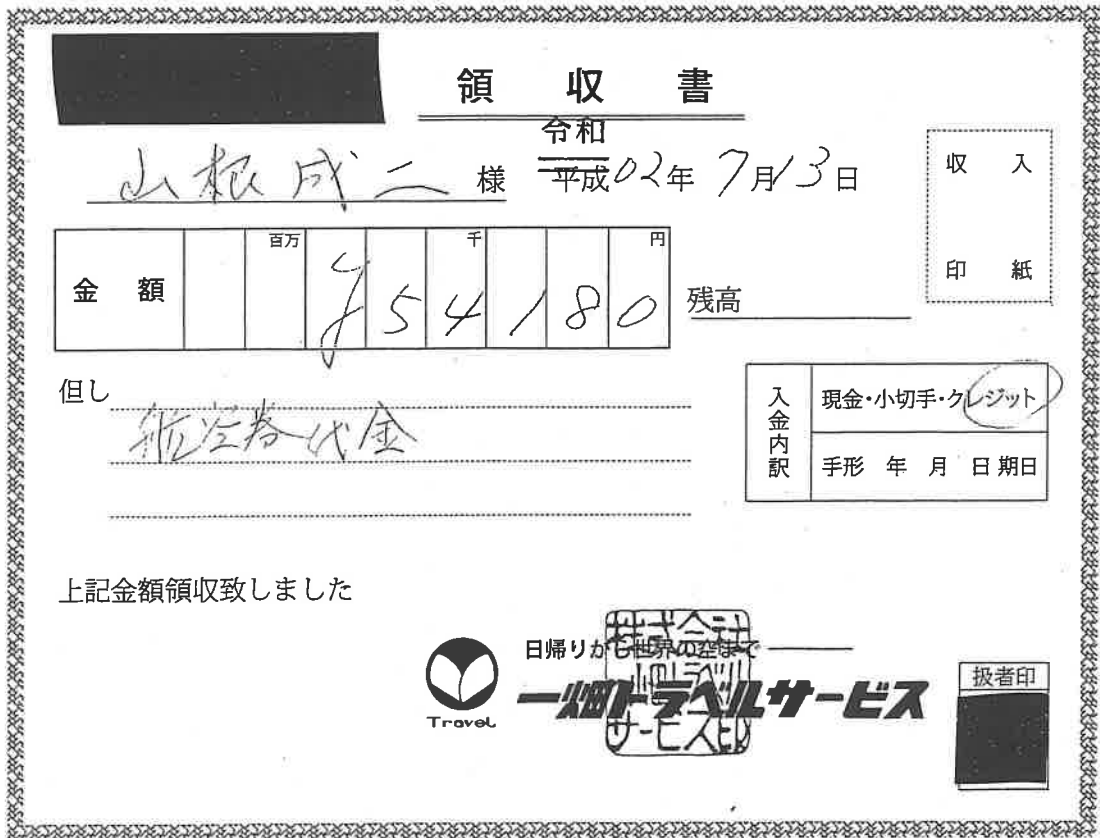 領収書
令和
山根成二 様 平成02年7月13日
収入
印紙
金額 百万 千 円
¥54180
残高
但し
航空券代金
入金内訳
現金・小切手・クレジット
手形 年 月 日期日
上記金額領収致しました
日帰りから世界の空まで
Travel
一畑トラベルサービス
株式会社
一畑トラベル
サービス印
扱者印